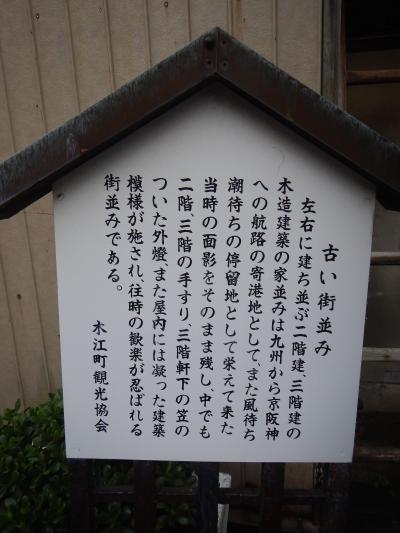 古い街並み
左右に建ち並ぶ二階建、三階建の
木造建築の家並みは九州から京阪神
への航路の寄港地として、また風待ち
潮待ちの停留地として栄えて来た
当時の面影をそのまま残し、中でも
二階、三階の手すり、三階軒下の笠の
ついた外燈、また屋内には凝った建築
模様が施され、往時の歓楽が忍ばれる
街並みである。
木江町観光協会